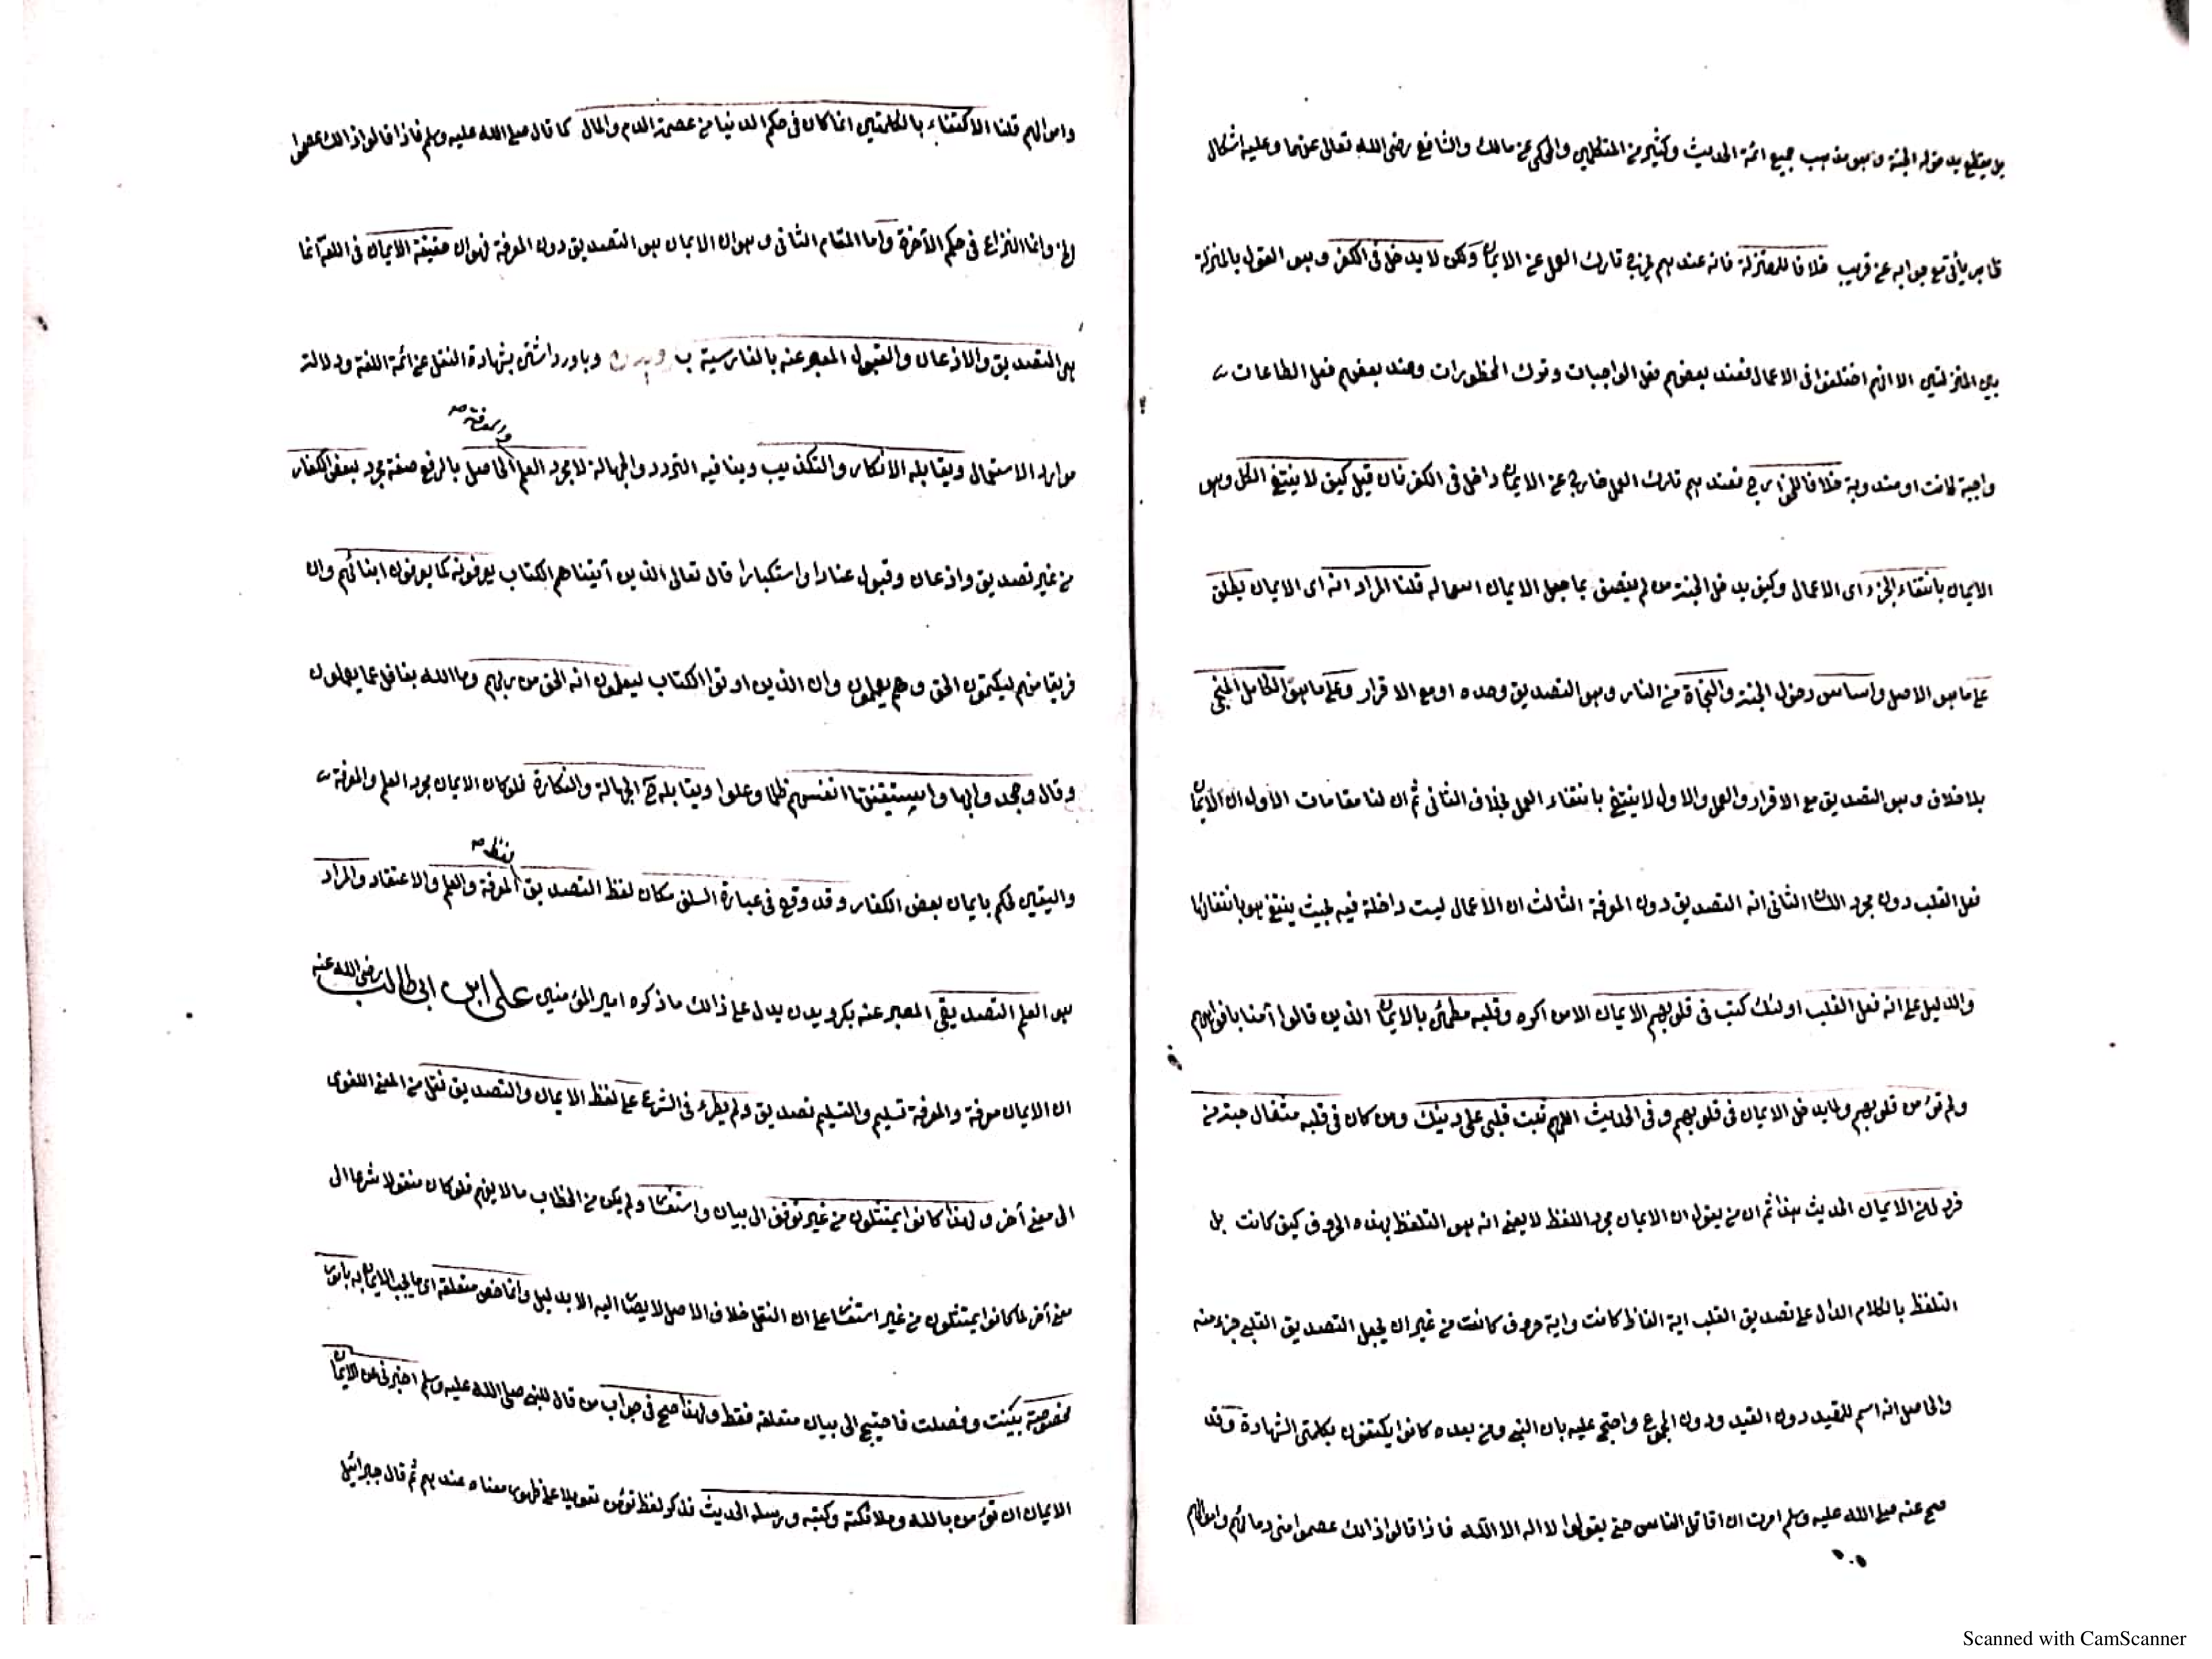 بل يقطع بدخوله الجنة وهو مذهب جميع ائمة الحديث وكثير من المتكلمين والمحكى عن مالك والشافعى رضى الله تعالى عنهما وعليه اشكال
ظاهر يأتى مع جوابه عن قريب خلافا للمعتزلة فانه عندهم يخرج تارك العمل عن الايمان ولكن لا يدخل فى الكفر وهو القول بالمنزلة
بين المنزلتين الا انهم اختلفوا فى الاعمال فعند بعضهم فعل الواجبات وترك المحظورات وعند بعضهم فعل الطاعات
واجبة كانت او مندوبة خلافا للخوارج فعندهم تارك العمل خارج عن الايمان داخل فى الكفر فان قيل كيف لا ينتفى الكل وهو
الايمان بانتفاء الجزء اى الاعمال وكيف يدخل الجنة من لم يتصف بما جعل الايمان اسما له قلنا المراد انه اى الايمان يطلق
على ما هو الاصل واساس دخول الجنة والنجاة من النار وهو التصديق وحده او مع الاقرار وعلى ما هو الكامل المنجى
بلا خلاف وهو التصديق مع الاقرار والعمل والاول لا ينتفى بانتفاء العمل بخلاف الثانى ثم ان لنا مقامات الاول ان الايمان
فعل القلب دون مجرد اللسان الثانى انه التصديق دون المعرفة الثالث ان الاعمال ليست داخلة فيه بحيث ينتفى هو بانتفائها
والدليل على انه فعل القلب اولئك كتب فى قلوبهم الايمان الا من اكره وقلبه مطمئن بالايمان الذين قالوا آمنا بافواههم
ولم تؤمن قلوبهم ولما يدخل الايمان فى قلوبهم وفى الحديث اللهم ثبت قلبى على دينك ومن كان فى قلبه مثقال حبة من
خردل من الايمان الحديث هذا ثم ان من يقول ان الايمان مجرد اللفظ لا يعنى انه هو التلفظ بهذه الحروف كيف كانت بل
التلفظ بالكلام الدال على تصديق القلب اية الفاظ كانت واية حروف كانت من غير ان يجعل التصديق القلبى جزء منه
والحاصل انه اسم للمقيد دون القيد ودون المجموع واحتج عليه بان النبى ومن بعده كانوا يكتفون بكلمتى الشهادة وقد
صح عنه صلى الله عليه وسلم امرت ان اقاتل الناس حتى يقولوا لا اله الا الله فاذا قالوا ذالك عصموا منى دمائهم واموالهم
واموالهم قلنا الاكتفاء بالكلمتين انما كان فى حكم الدنيا من عصمة الدم والمال كما قال صلى الله عليه وسلم فاذا قالوا ذالك عصموا
الخ وانما النزاع فى حكم الآخرة واما المقام الثانى وهو ان الايمان هو التصديق دون المعرفة فهو ان حقيقة الايمان فى اللغة انما
هى التصديق والاذعان والقبول المعبر عنه بالفارسية ب وباور داشتن بشهادة النقل عن ائمة اللغة ودلالة
موارد الاستعمال ويقابله الانكار والتكذيب وينافيه التردد والجهالة لا مجرد العلم والمعرفة الحاصل بالرفع صفة مجرد لبعض الكفار
من غير تصديق واذعان وقبول عنادا واستكبارا قال تعالى الذين آتيناهم الكتاب يعرفونه كما يعرفون ابنائهم وان
فريقا منهم ليكتمون الحق وهم يعلمون وان الذين اوتوا الكتاب ليعلمون انه الحق من ربهم وما الله بغافل عما يعملون
وقال وجحدوا بها واستيقنتها انفسهم ظلما وعلوا ويقابله الجهالة والنكارة فلو كان الايمان مجرد العلم والمعرفة
واليقين لحكم بايمان بعض الكفار وقد وقع فى عبارة السلف مكان لفظ التصديق لفظ المعرفة والعلم والاعتقاد والمراد
هو العلم التصديقى المعبر عنه بكرويدن يدل على ذالك ما ذكره امير المؤمنين على ابن ابى طالب رضى الله عنه
ان الايمان معرفة والمعرفة تسليم والتسليم تصديق ولم يطرء فى الشرع على لفظ الايمان والتصديق نقل من المعنى اللغوى
الى معنى آخر ولهذا كانوا يمتثلون من غير توقف الى بيان واستفسار ولم يكن من الخطاب ما لا يفهم فلو كان منقولا شرعا الى
معنى آخر لما كانوا يمتثلون من غير استفسار على ان النقل خلاف الاصل لا يصار اليه الا بدليل وانما خص متعلقه اى ما يجب الايمان به بامور
مخصوصة بينت وفصلت فاحتيج الى بيان متعلقه فقط ولهذا صح فى جواب من قال للنبى صلى الله عليه وسلم اخبرنى عن الايمان
الايمان ان تؤمن بالله وملائكته وكتبه ورسله الحديث فذكر لفظ تؤمن تعويلا على ظهور معناه عندهم ثم قال جبرائيل
Scanned with CamScanner